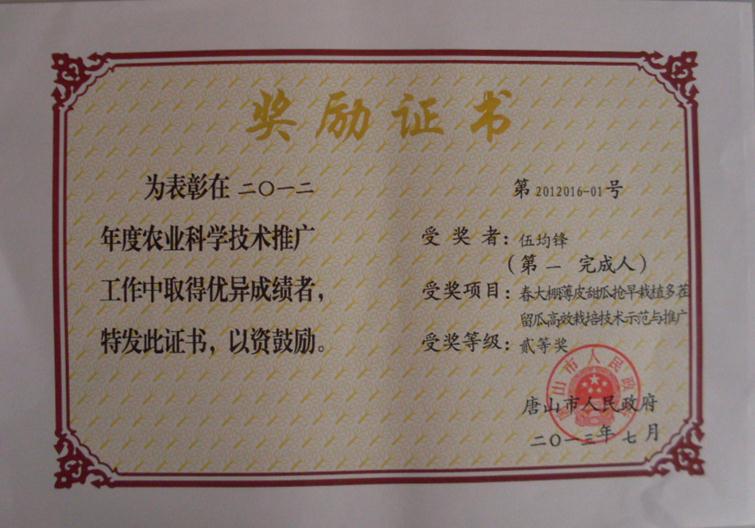 奖励证书
为表彰在 二〇一二
年度农业科学技术推广
工作中取得优异成绩者，
特发此证书，以资鼓励。
第2012016-01号
受奖者：伍均锋
（第一 完成人）
受奖项目：春大棚薄皮甜瓜抢早栽植多茬
留瓜高效栽培技术示范与推广
受奖等级：贰等奖
唐山市人民政府
二〇一三年七月
唐山市人民政府